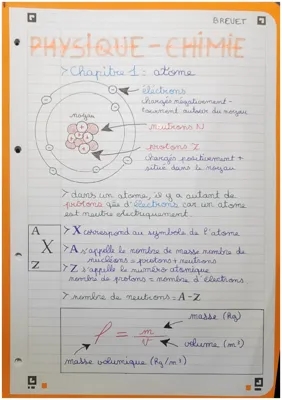 BREVET
PHYSIQUE-CHIMIE
> Chapitre 1 : atome
électrons
chargés négativement -
tournent autour du noyau
noyau
neutrons N
protons Z
chargés positivement +
situé dans le noyau
> dans un atome, il y a autant de
protons que d'électrons car un atome
est neutre électriquement.
A
X
Z
> X correspond au symbole de l'atome
> A s'appelle le nombre de masse nombre de
nucléons = protons + neutrons
> Z s'appelle le numéro atomique
nombre de protons = nombre d'électrons
> nombre de neutrons = A-Z
masse (Kg)
ρ = m/v
volume (m³)
masse volumique (Kg/m³)